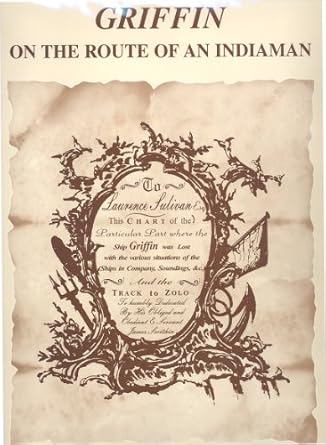 GRIFFIN
ON THE ROUTE OF AN INDIAMAN
To
Laurence Sulivan Esq.
This CHART of the
Particular Part where the
Ship Griffin was Lost
with the various situations of the
Ships in Company, Soundings, &c.
And the
TRACK to ZOLO
Is humbly Dedicated
By His Obliged and
Obedient & Servant
James